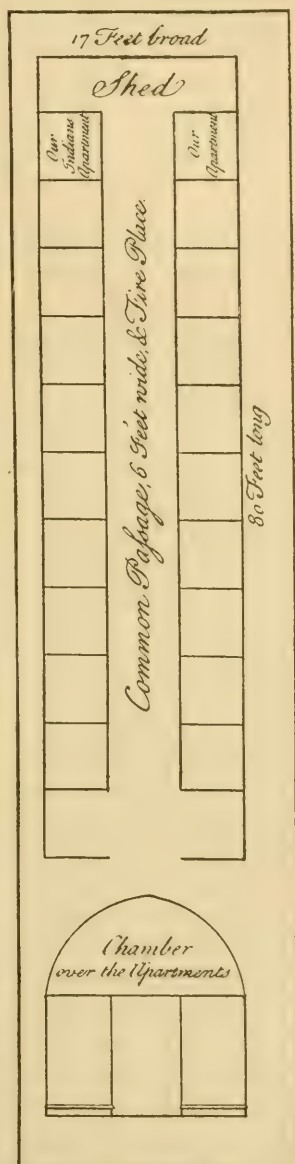 17 Feet broad
Shed
Our
Indians
Apartment
Our
Apartment
Common Paſsage, 6 Feet wide, & Fire Place.
80 Feet long
Chamber
over the Apartments